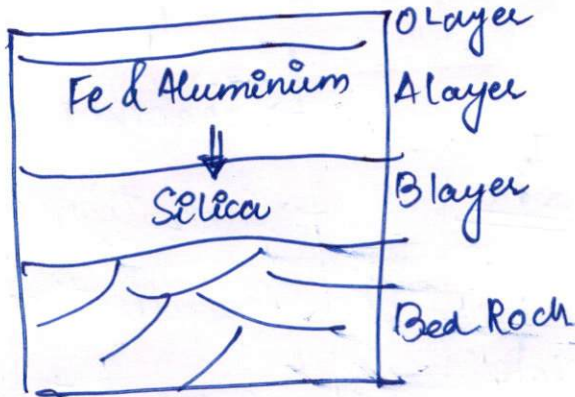 O Layer
Fe & Aluminium
A layer
Silica
B layer
Bed Rock